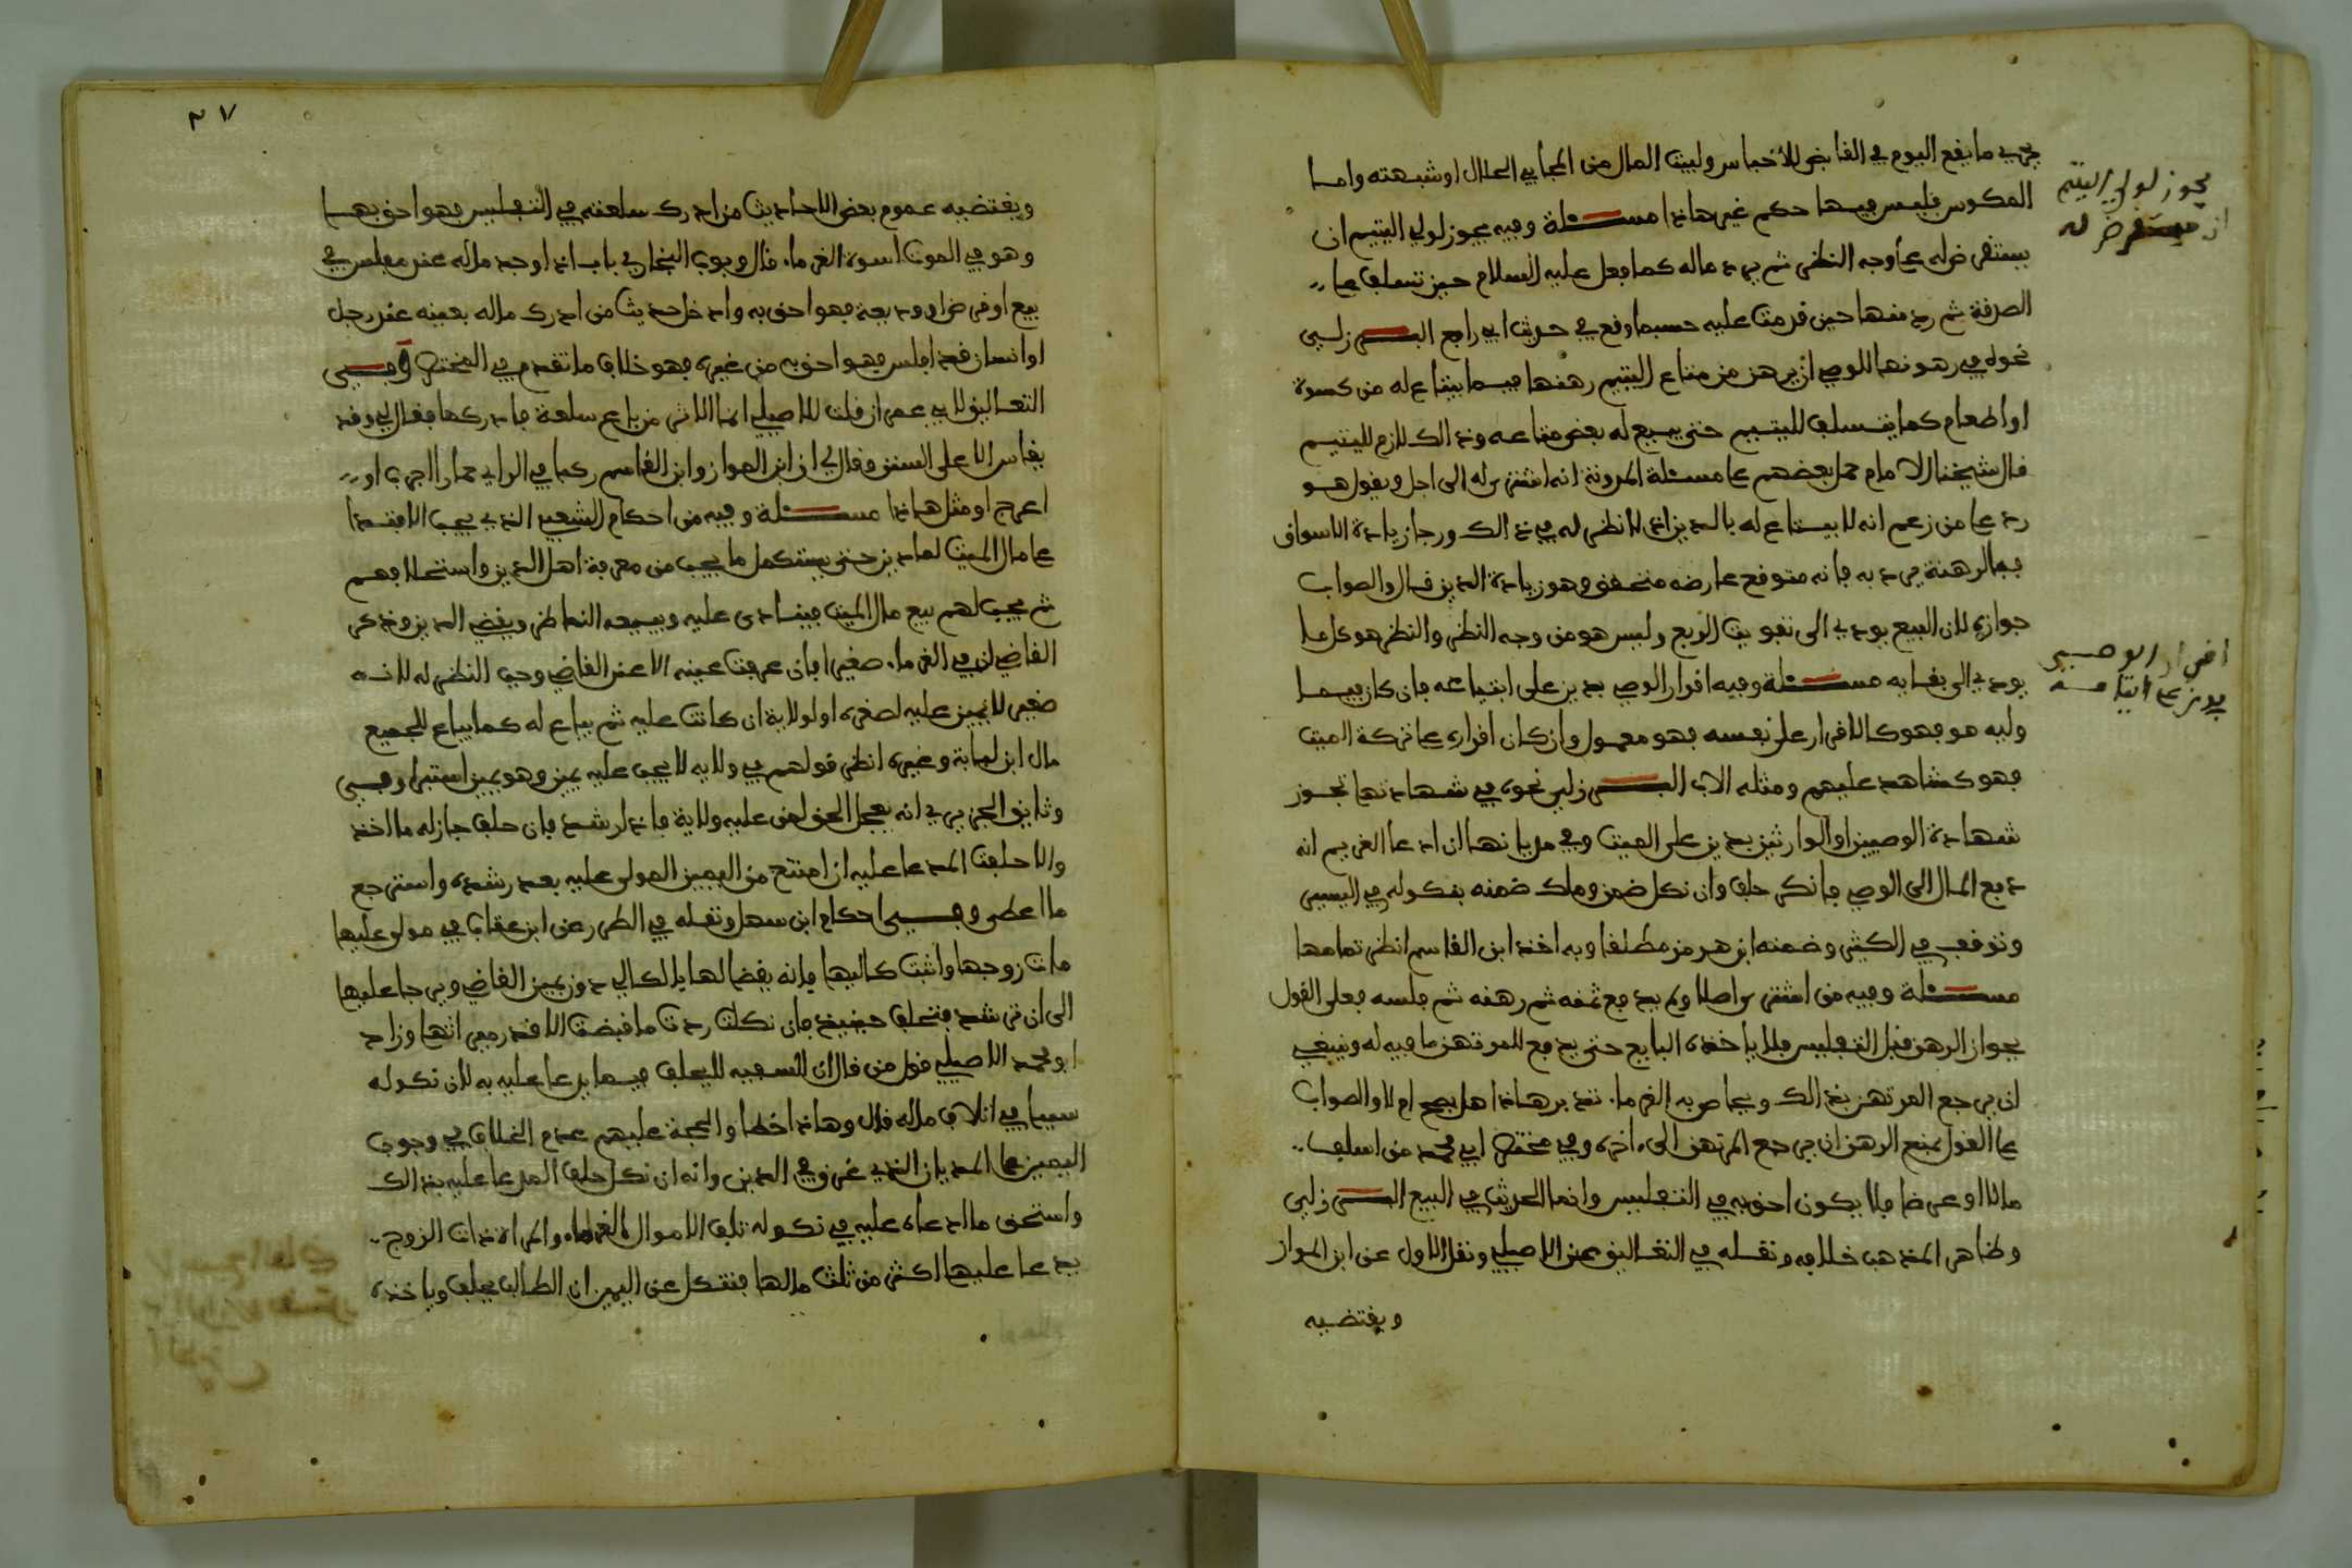 يجري ما يقع اليوم في القابض للأحباس ولبيت المال من المجابي الحلال او شبهته واما
المكوس فليس فيها حكم غير هاذا مسئلة وفيه يجوز لولي اليتيم ان
يستقرض له على وجه النظر ثم يرد ماله كما فعل عليه السلام حين تسلف على
الصدقة ثم رد منها حين قدمت عليه حسبما وقع في حديث ابي رافع البرزلي
نحوه في رهونها للوصي ان يرهن من متاع اليتيم رهنها فيما يبتاع له من كسوة
او طعام كما يتسلف لليتيم حتى يبيع له بعض متاعه وذالك لازم لليتيم
قال شيخنا الامام حمل بعضهم على مسئلة المدونة انه اشترى له الى اجل ويقول هو
رد على من زعم انه لا يبتاع له بالدين اذ لا نظر له في ذالك ورجا زيادة الاسواق
فيما لرهنه يرد به فانه متوقع عارضه متحقق وهو زيادة الدين قال والصواب
جوازه لان البيع يودي الى تفويت الربع وليس هو من وجه النظر والنظر هو كل ما
يودي الى بقايه مسئلة وفيه اقرار الوصي بدين على ابتياعه فان كان فيما
وليه هو فهو كالاقرار على نفسه فهو معمول وان كان اقراره على تركة الميت
فهو كشاهد عليهم ومثله الاب البرزلي نحوه في شهاداتها تجوز
شهادة الوصيين او الوارثين بدين على الميت وفي مديانها ان ادعا الغريم انه
دفع المال الى الوصي فانكر حلف وان نكل ضمن وملك ضمنه بنكوله في اليسير
وتوقف في الكثير وضمنه ابن هرمز مطلقا وبه اخذ ابن القاسم انظر تمامها
مسئلة وفيه من اشترى اصلا ولم يدفع ثمنه ثم رهنه ثم فلسه فعلى القول
بجواز الرهن قبل التفليس فلا ياخذه البايع حتى يدفع للمرتهن ما فيه له وينبغي
ان يرجع المرتهن بذالك ويحاص به الغرما. تدبر هاذا هل يصح ام لا والصواب
على القول بمنع الرهن ان يرجع المرتهن الى اخره وفي مختصر ابي محمد من اسلف
مالا او عرضا فلا يكون احق به في التفليس وانما الحديث في البيع البرزلي
وظاهر المذهب خلافه ونقله في التعاليق عن الاصيلي ونقل الاول عن ابن المواز
ويقتضيه
يجوز لولي اليتيم
ان يستقرض له
اقرار الوصي
بدين على ايتامه
٣٧
ويقتضيه عموم بعض الاحاديث من ادرك سلعته في التفليس فهو احق بها
وهو في الموت اسوة الغرما. قال وبوب البخاري باب اذا وجد ماله عند مفلس في
بيع او قرض او وديعة فهو احق به وادخل حديث من ادرك ماله بعينه عند رجل
او انسان قد افلس فهو احق به من غيره فهو خلاف ما تقدم في المختصر وفي
التعاليق لابي عمران قلت للاصيلي انما الاثر من باع سلعة فادركها فقال لي وقد
يقاس الا على السنن وقال لي ان ابن المواز وابن القاسم
اعرج او مثل هاذا مسئلة وفيه من احكام الشعبي الذي يجب الا يقتدا
على مال الميت لغاديز حتى يستكمل ما يجب من معرفة اهل الدين واستحلافهم
ثم يجب لهم بيع مال الميت فينادى عليه ويبيعه الناظر ويقضي الدين وذكر
القاضي ان في الغرما. صغيرا فان عرفت عينه الا عند القاضي وجب النظر له لانه
صغير لا يميز عليه لصغره او لولاية ان كانت عليه ثم يباع له كما يباع للجميع
مال ابن لبابة وغيره انظر قولهم في ولايه لا يجب عليه يمين وهو يمين استبرا وفي
وثايق الجزيري انه يعجل الحق لمن عليه ولاية فاذا رشد فان حلف جاز له ما اخذ
والا حلف المدعا عليه ان امتنع من اليمين المولى عليه بعد رشده واسترجع
ما اعطى وفي احكام ابن سهل ونقله في الطرر عن ابن عقاب في مولى عليها
مات زوجها واثبت كاليها فانه يقضا لها بذلك الي دون يمين القاضي ويرجا عليها
الى ان ترشد فتحلف حينيذ فان نكلت ردت ما قبضت الا قدر ميراثها وزاد
ابو محمد الاصيلي قول من قال ان السفيه لا يحلف فيما يدعا عليه به لان نكوله
سببا في اتلاف ماله قال وهاذا خطأ والحجة عليهم عدم الخلاف في وجوب
اليمين على المديان الذي غرق في الدين وانه ان نكل حلف المدعا عليه بذالك
واستحق ما ادعاه عليه في نكوله تلف الاموال الغرما. والمراة ذات الزوج
يدعا عليها اكثر من ثلث مالها فتنكل عن اليمين ان الطالب يحلف وياخذه